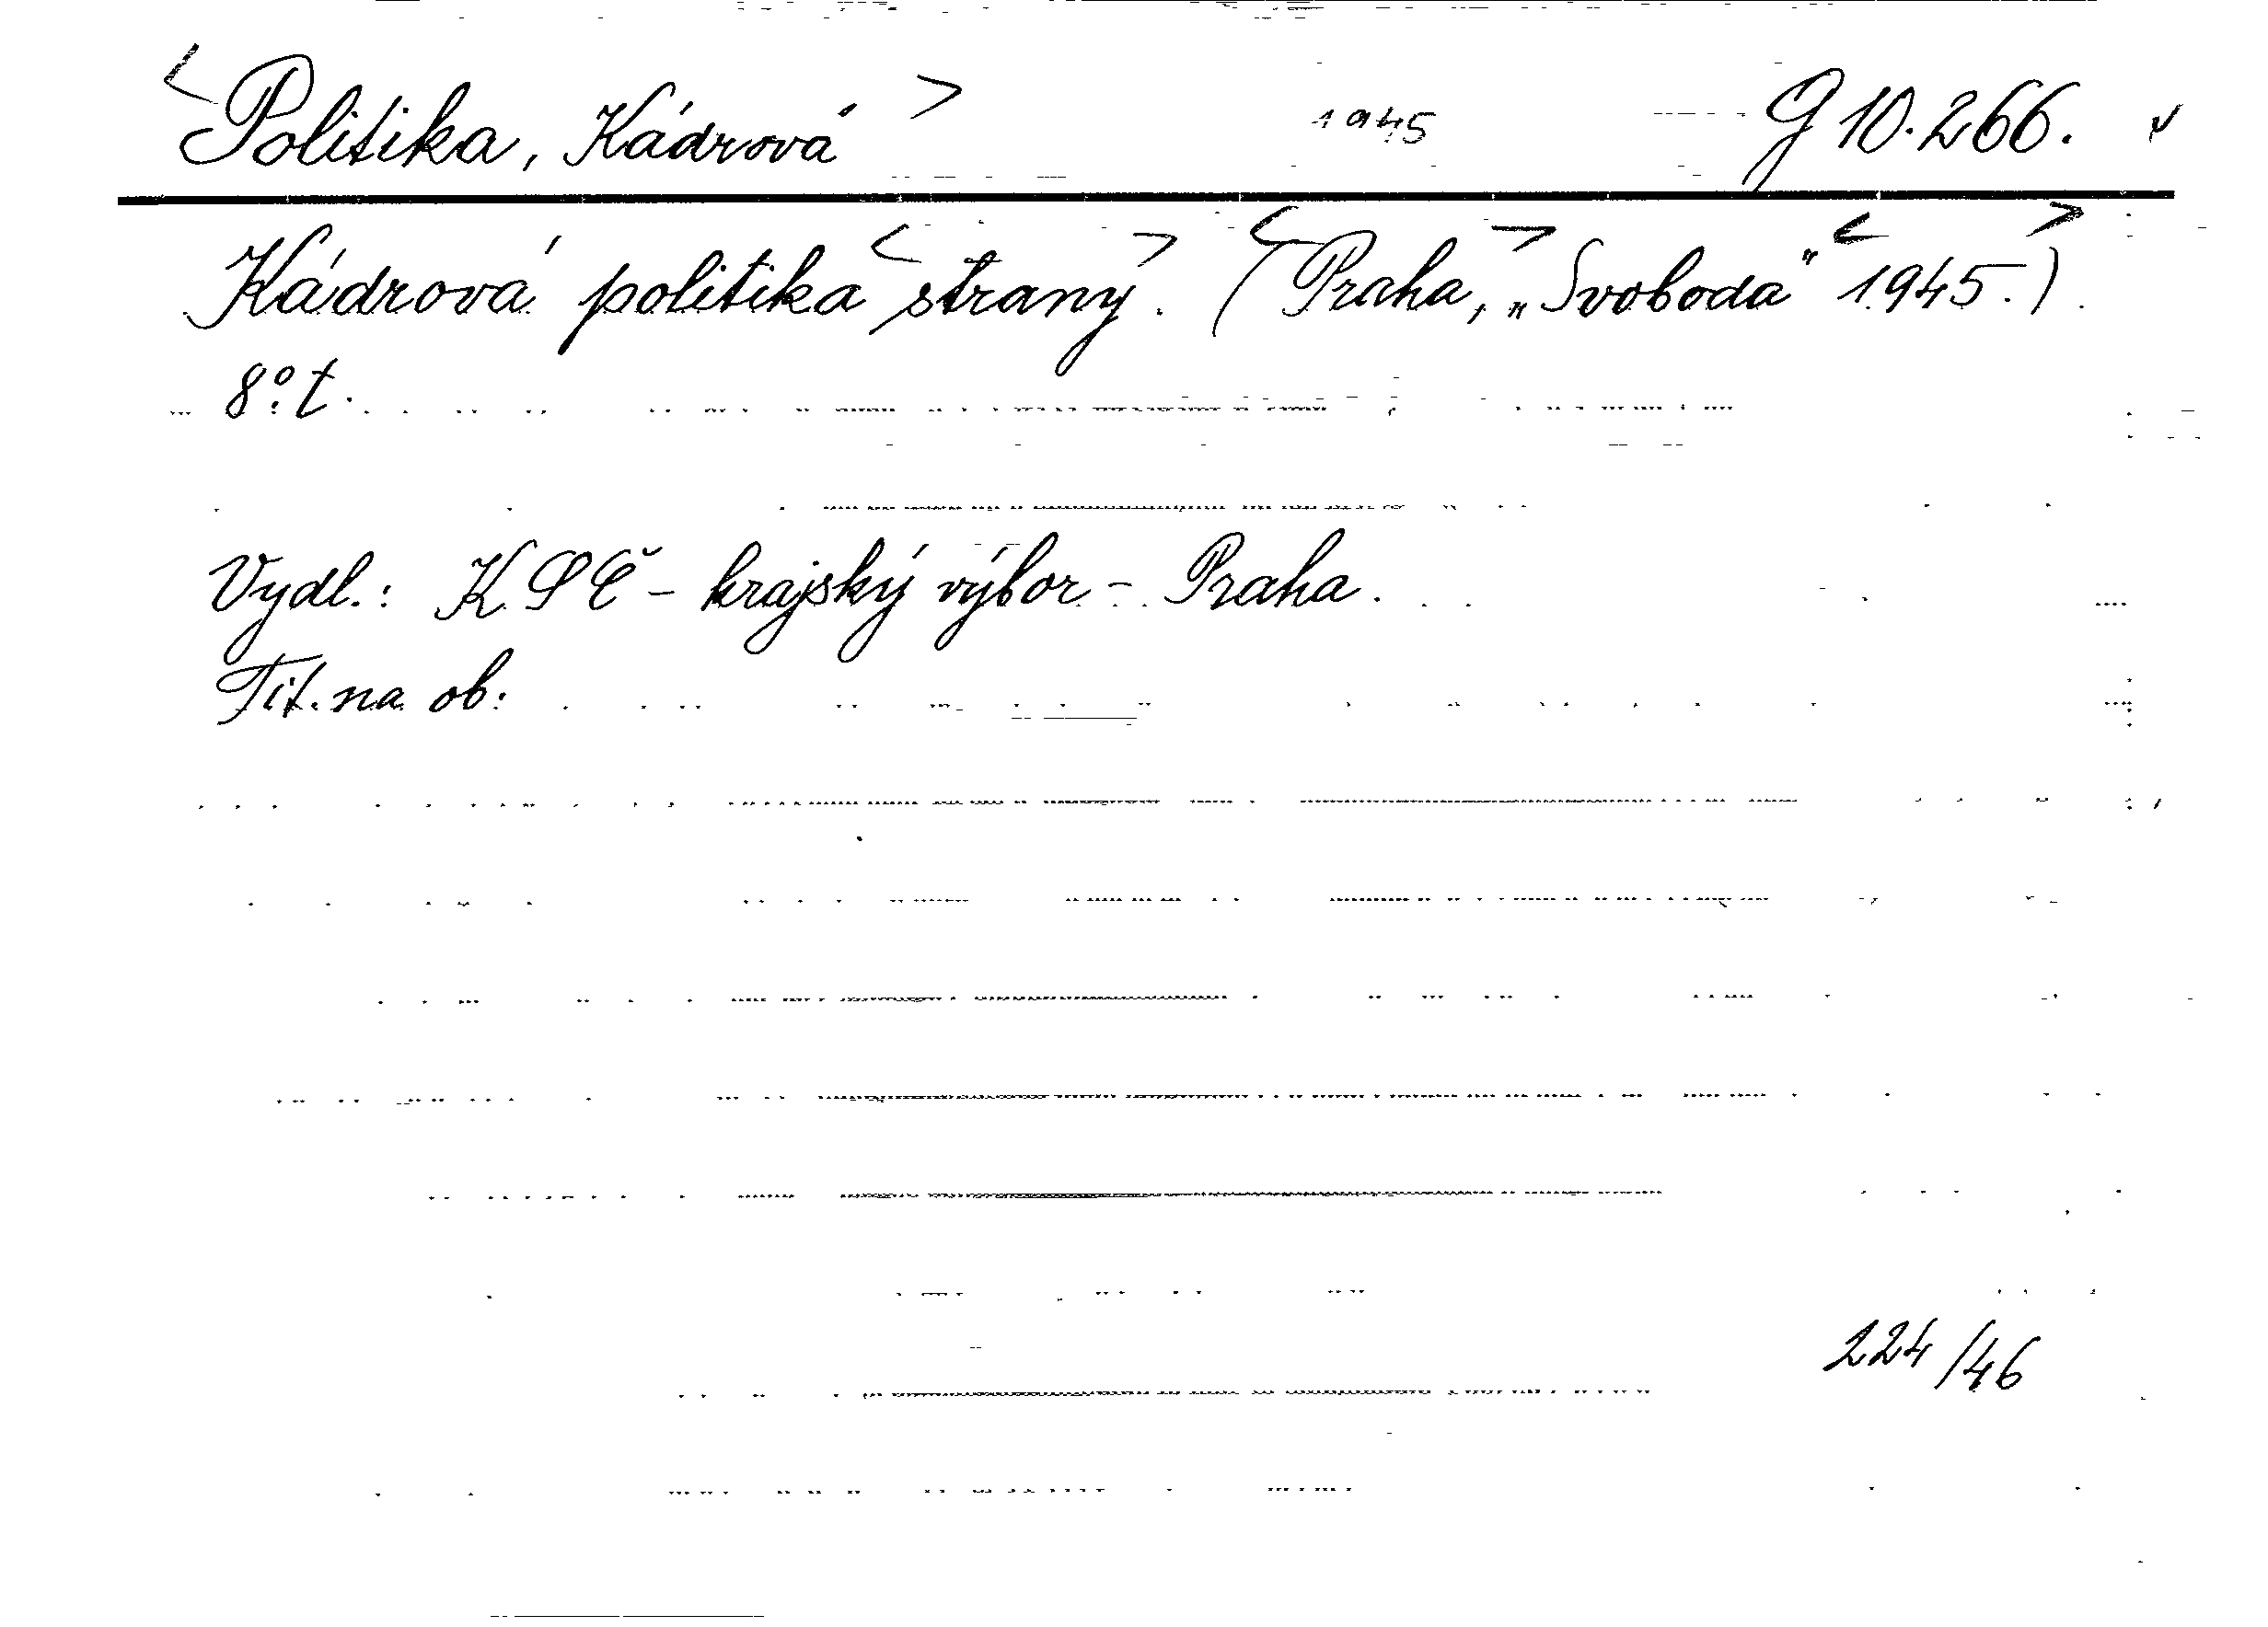 <Politika, Kádrová> 1945 G 10.266. v
Kádrová politika <strany>. (<Praha,> „Svoboda" <1945.>)
8°. t.
Vydl.: KSČ - krajský výbor - Praha.
Tit. na ob:
224/46